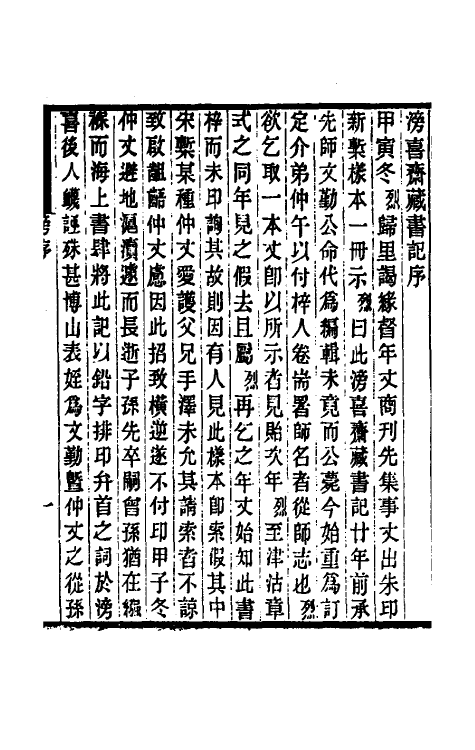 滂喜齋藏書記序
甲寅冬烈歸里謁緣督年丈商刊先集事丈出朱印
新槧樣本一冊示烈曰此滂喜齋藏書記廿年前承
先師文勤公命代爲編輯未竟而公薨今始重爲訂
定介弟仲午以付梓人卷耑署師名者從師志也烈
欲乞取一本丈卽以所示者見貽次年烈至津沽章
式之同年見之假去且屬烈再乞之年丈始知此書
梓而未印詢其故則因有人見此樣本卽索假其中
宋槧某種仲丈愛護父兄手澤未允其請索者不諒
致啟齟齬仲丈慮因此招致橫逆遂不付印甲子冬
仲丈避地滬瀆遽而長逝子孫先卒嗣曾孫猶在襁
緥而海上書肆將此記以鉛字排印弁首之詞於滂
喜後人衊誣殊甚博山表姪爲文勤曁仲丈之從孫
滂序
一